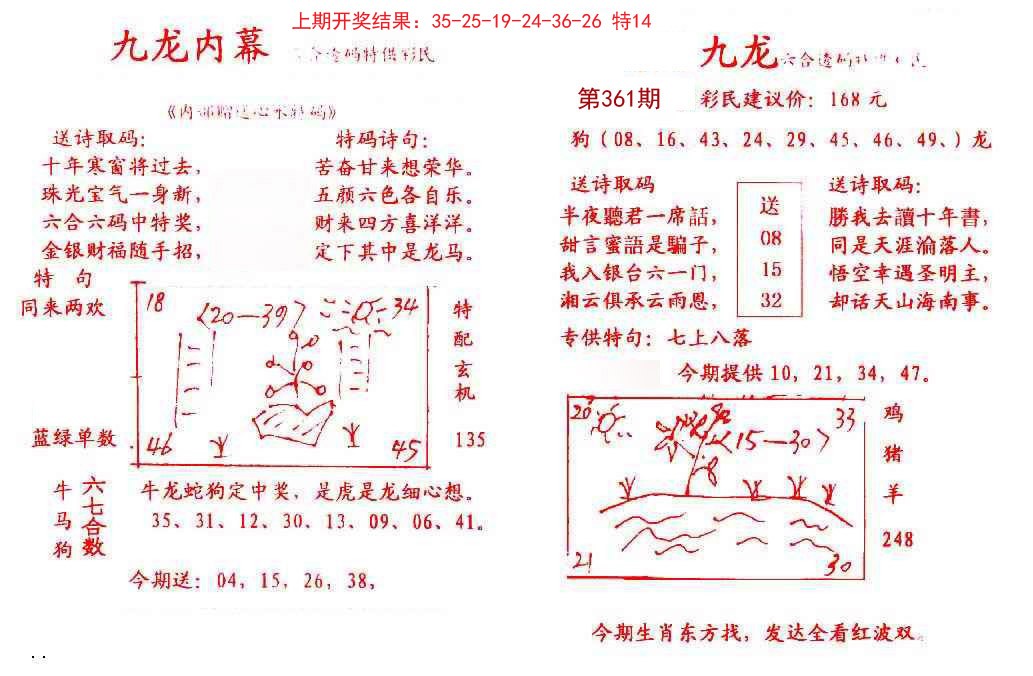 上期开奖结果：35-25-19-24-36-26 特14
九龙内幕
送诗取码：
十年寒窗将过去，
珠光宝气一身新，
六合六码中特奖，
金银财福随手招，
特码诗句：
苦奋甘来想荣华。
五颜六色各自乐。
财来四方喜洋洋。
定下其中是龙马。
特 句
同来两欢
蓝绿单数
18
〈20—39〉
34
46
45
特配玄机
135
牛马狗
六七合数
牛龙蛇狗定中奖，是虎是龙细心想。
35、31、12、30、13、09、06、41。
今期送：04，15，26，38，
九龙六合透码特供彩民
第361期
彩民建议价：168元
狗（08、16、43、24、29、45、46、49、）龙
送诗取码
半夜聽君一席話，
甜言蜜語是騙子，
我入银台六一门，
湘云俱承云雨恩，
送
08
15
32
送诗取码：
勝我去讀十年書，
同是天涯渝落人。
悟空幸遇圣明主，
却话天山海南事。
专供特句：七上八落
今期提供10，21，34，47。
20
〈15—30〉
33
21
30
鸡
猪
羊
248
今期生肖东方找，发达全看红波双。